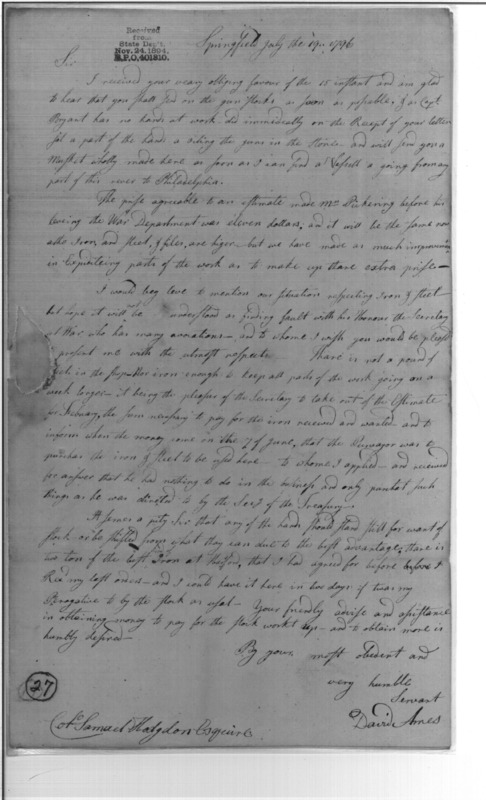 Received
from
State Dep't.
Nov. 24, 1894,
R.P.O, 401210.
Springfield July the 19th 1796
Sir
I received your very obliging favour of the 15 instant and am glad
to hear that you shall send on the gun stocks as soon as possible, & as Capt
Bryant has no hands at work. did immediately on the Recept of your letter
set a part of the hands a stocking the guns in the House and will send you a
Musket wholly made here as soon as I can find a Vessell a going from any
part of this river to Philadelphia.
The prise agreable to an estimate made Mr Pickering before his
leaving the War Department was eleven dollars, and it will be the same now
altho Iron, and steel, & files, are higer but we have made as much improvement
in Expediteing parts of the work as to make up those extra prises—
I would beg leave to mention our situation respecting Iron & steel
but hope it will not be understood as finding fault with his Honour the Secretary
at War who has many avocations— and to whome I wish you would be pleased
present me with the utmost respects. There is not a pound of
steel in the shop. Nor iron enough to keep all parts of the work going on a
week longer— it being the pleaser of the Secretary to take out of the Estimate
for February, the sum nessesary to pay for the iron received and wanted. and to
inform when the money came in the 7 of June, that the Purvayor was to
purchas the iron & steel to be used here— to whome I applied— and received
for answer that he had nothing to do in the buisness and only purchast such
things as he was directed to by the Secy of the Treasury.
It semes a pity Sir that any of the hands should stand still for want of
stock— or be shifted from what they can due to the best advantage, thare is
two ton of the best Iron at Hartford, that I had agreed for before before I
Recd my last orders— and I could have it here in two days if twas my
Perogative to by the stock as usal— Your friendly advise and assistance
in obtaining money to pay for the stock workt up— and to obtain more is
humbly desired—
By your most obedient and
very humble
Servant
David Ames
27
Col. Samuel Hodgdon Esquire